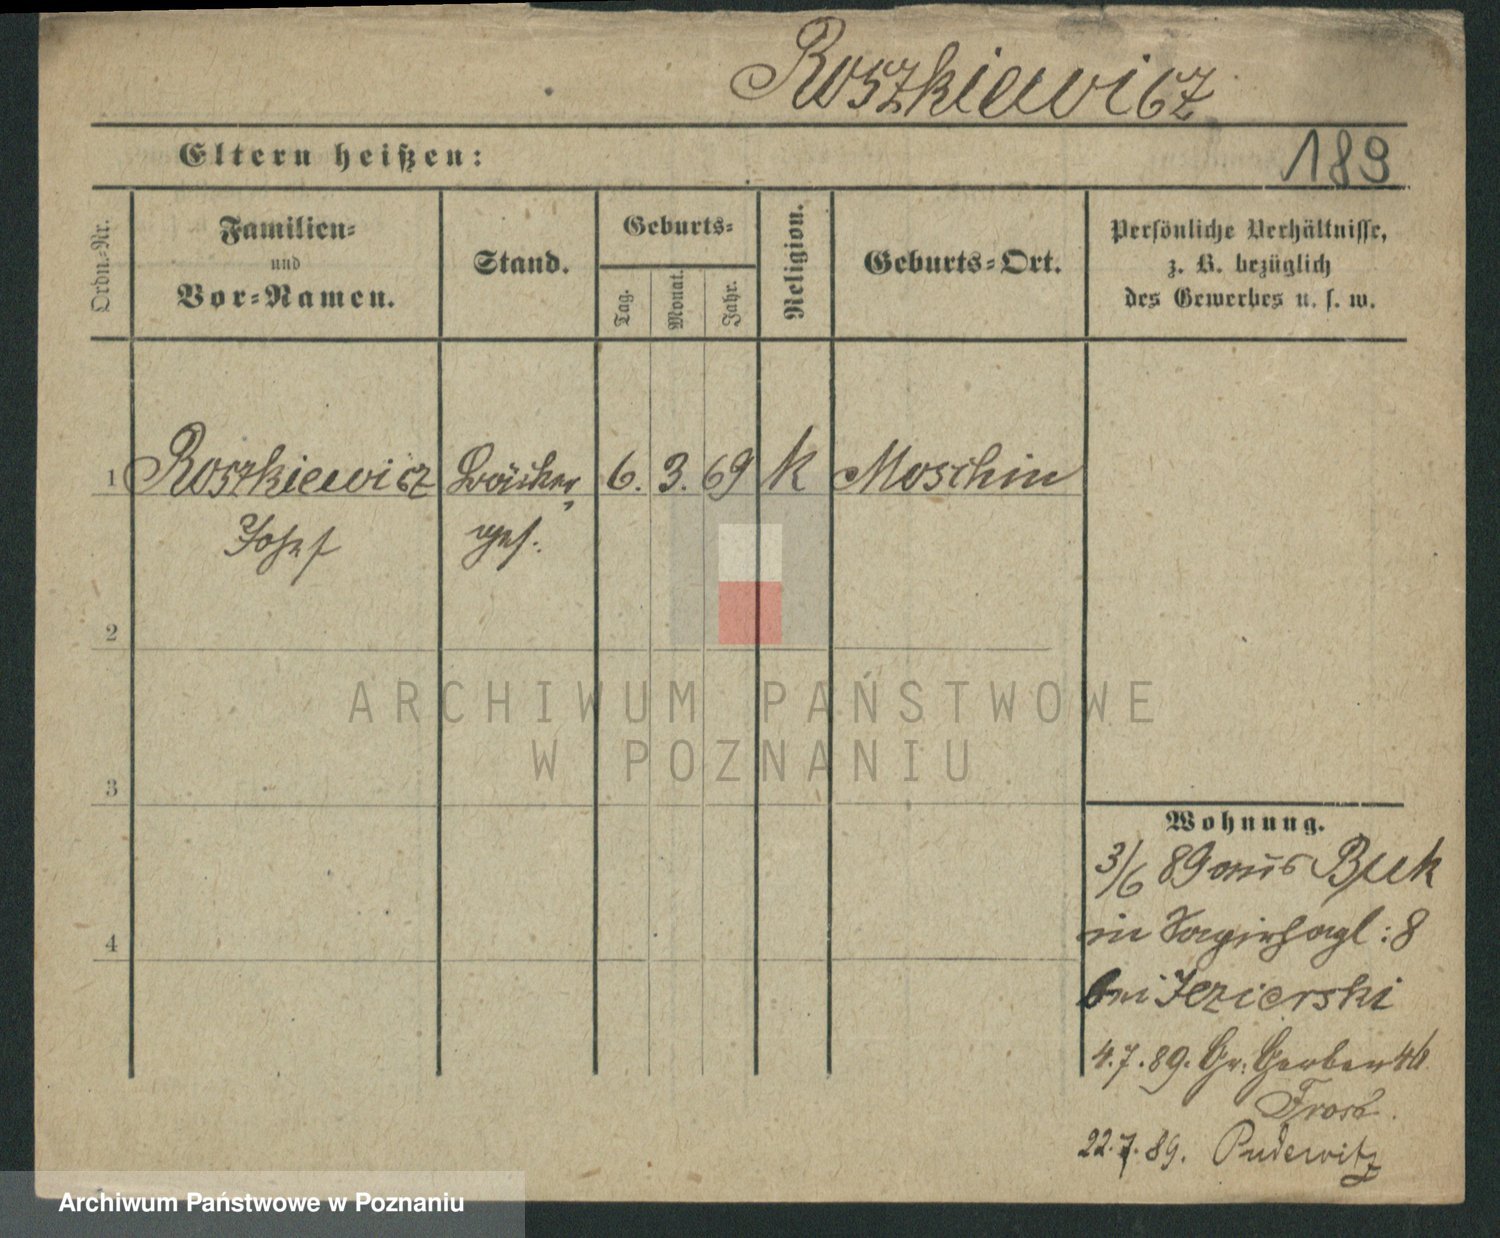 Roszkiewicz
Eltern heißen:
189
Ordn.-Nr.
Familien-
und
Vor-Namen.
Stand.
Geburts-
Tag.
Monat.
Jahr.
Religion.
Geburts-Ort.
Persönliche Verhältnisse,
z. B. bezüglich
des Gewerbes u. s. w.
1 Roszkiewicz Bäcker 6. 3. 69 k Moschin
Josef ges.
2
3
4
Wohnung.
3/6 89 aus Buk
in :8
bei Jezierski
4.7.89. Gr. Gerber
22.7.89. Pudewitz
ARCHIWUM PAŃSTWOWE
W POZNANIU
Archiwum Państwowe w Poznaniu